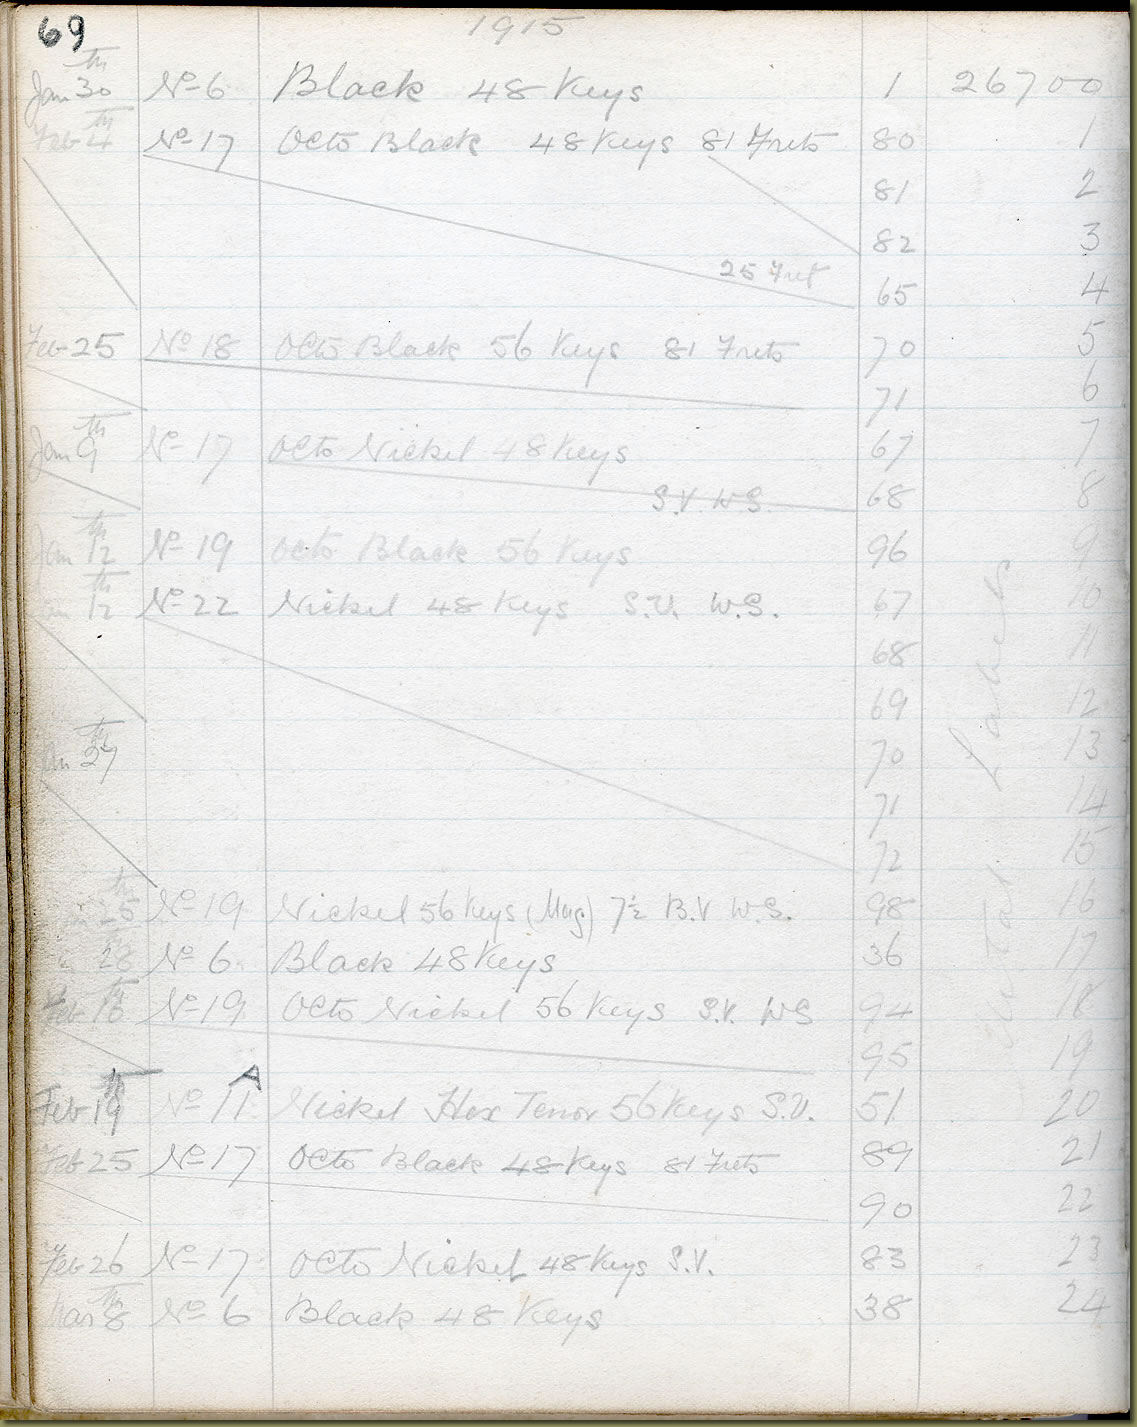 69 1915
Jan 30th No 6 Black 48 Keys 1 26700
Feb 4th No 17 Octo Black 48 Keys 81 Frets 80 1
81 2
82 3
25 Fret 65 4
Feb 25 No 18 Octo Black 56 Keys 81 Frets 70 5
71 6
Jan 9th No 17 Octo Nickel 48 Keys 67 7
S.V. W.S. 68 8
Jan 12th No 19 Octo Black 56 Keys 96 9
12th No 22 Nickel 48 Keys S.V. W.S. 67 10
68 11
69 12
an 27th 70 13
71 14
72 15
25th No 19 Nickel 56 Keys (Mag) 7½ B.V W.S. 98 16
28 No 6 Black 48 Keys 36 17
Feb 16th No 19 Octo Nickel 56 Keys S.V. WS 94 18
95 19
Feb 19th No 11A Nickel Hex Tenor 56 Keys S.V. 51 20
Feb 25 No 17 Octo Black 48 Keys 81 Frets 89 21
90 22
Feb 26 No 17 Octo Nickel 48 Keys S.V. 83 23
Mar 8th No 6 Black 48 Keys 38 24
Metal Labels